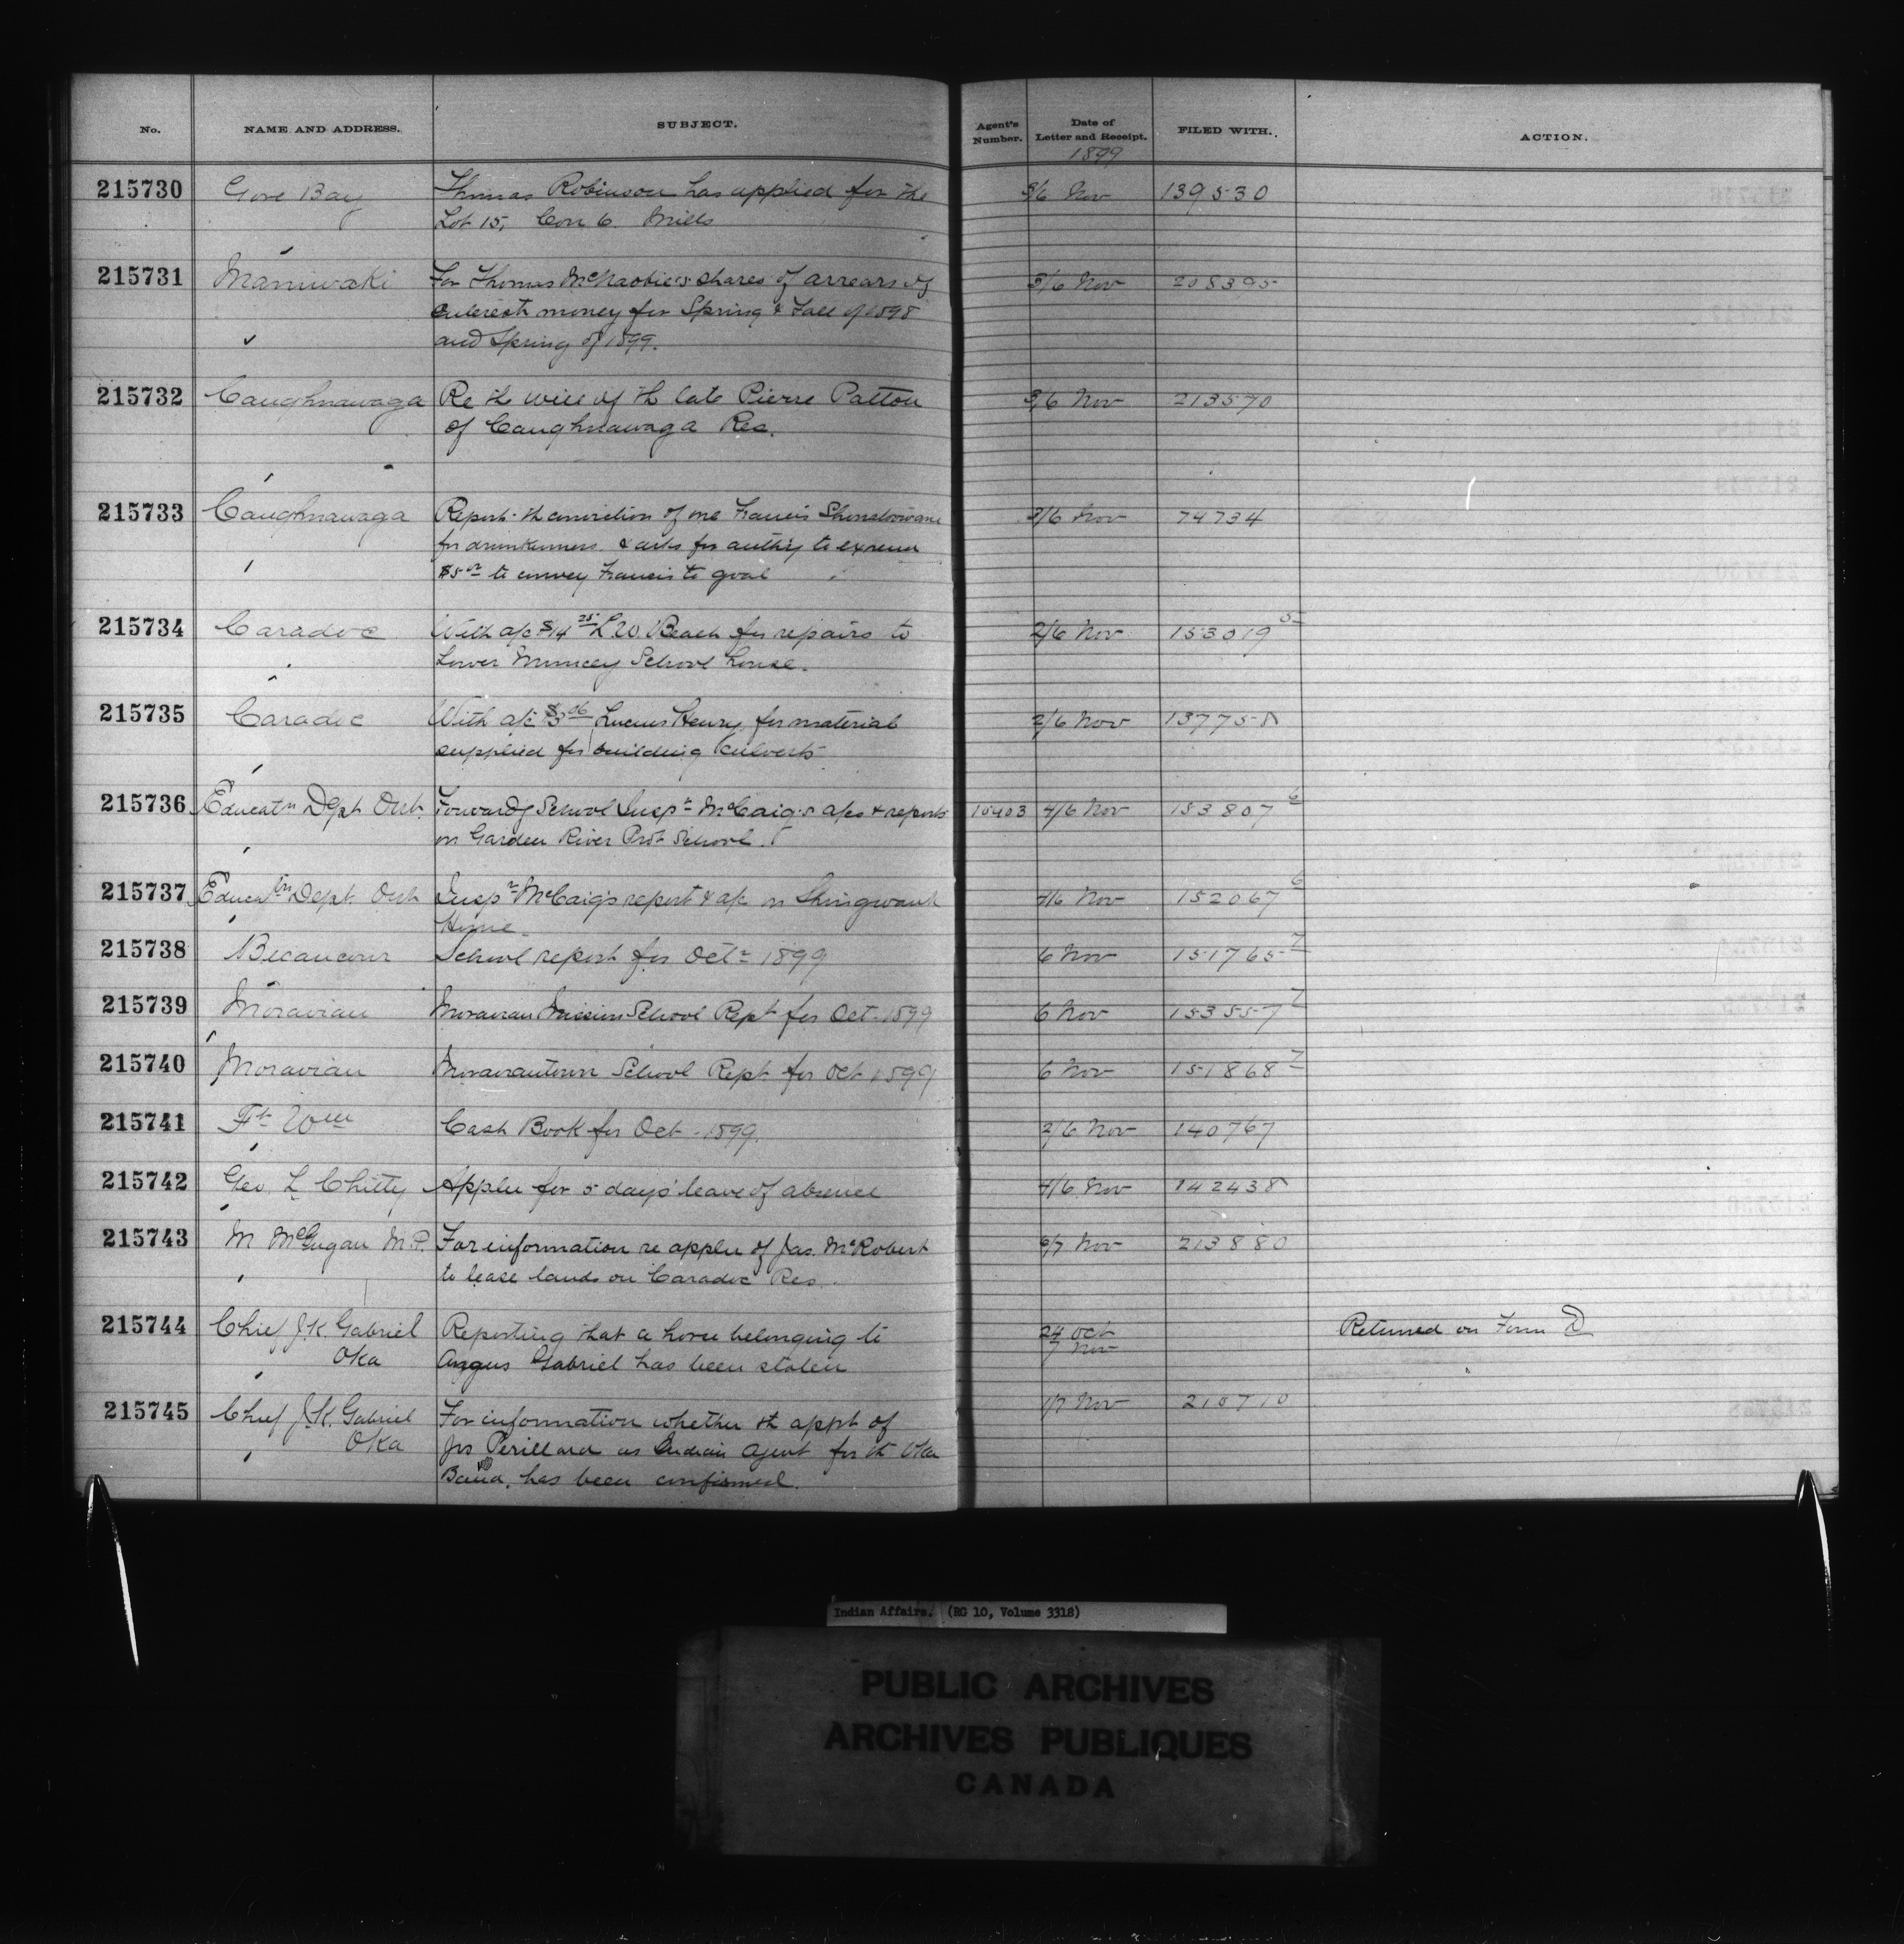 No. NAME AND ADDRESS. SUBJECT. Agent's Number. Date of Letter and Receipt. FILED WITH. ACTION.
1899
215730 Gore Bay Thomas Robinson has applied for the 3/6 Nov 139530
Lot 15, Con 6 Mills
215731 Maniwaki For Thomas McNaobie's shares of arrears of 3/6 Nov 208395
Interest money for Spring & Fall of 1898
and Spring of 1899.
215732 Caughnawaga Re the will of th late Pierre Patton 3/6 Nov 213570
of Caughnawaga Res.
215733 Caughnawaga Report th conviction of one Francis 3/6 Nov 74734
for drunkenness & asks for authy to
$5 00 to convey Francis to goal
215734 Caradoc With a/c $14 25 L.W. Beach for repairs to 2/6 Nov 153019 5
Lower Muncey School house.
215735 Caradoc With a/c $3 06 Lucius Henry for material 2/6 Nov 137758
supplied for building culverts
215736 Educatn Dept Ont. Forwardg School Inspr McCaig's a/cs & reports 10403 4/6 Nov 153807 6
on Garden River Prot School.
215737 Educatn Dept. Ont Inspr McCaig's report & a/c on Shingwauk 4/6 Nov 152067 6
Home.
215738 Becancour School report for Octr 1899 6 Nov 151765 7
215739 Moravian Moravian Mission School Rept for Oct 1899 6 Nov 153557 7
215740 Moravian Moraviantown School Rept for Oct 1899 6 Nov 151868 7
215741 Ft Wm Cash Book for Oct 1899. 2/6 Nov 140767
215742 Geo. L Chitty Applcn for 5 days' leave of absence 4/6 Nov 142438
215743 M McGugan M.P. For information re applcn of Jas. McRobert 6/7 Nov 213880
to lease lands on Caradoc Res.
215744 Chief J.K. Gabriel Reporting that a horse belonging to 24 Oct Returned on Form D
Oka Angus Gabriel has been stolen 7 Nov
215745 Chief J.K. Gabriel For information whether th appt of 1/7 Nov 210710
Oka Jos Perillard as Indian Agent for th Oka
Band, has been confirmed.
Indian Affairs. (RG 10, Volume 3318)
PUBLIC ARCHIVES
ARCHIVES PUBLIQUES
CANADA